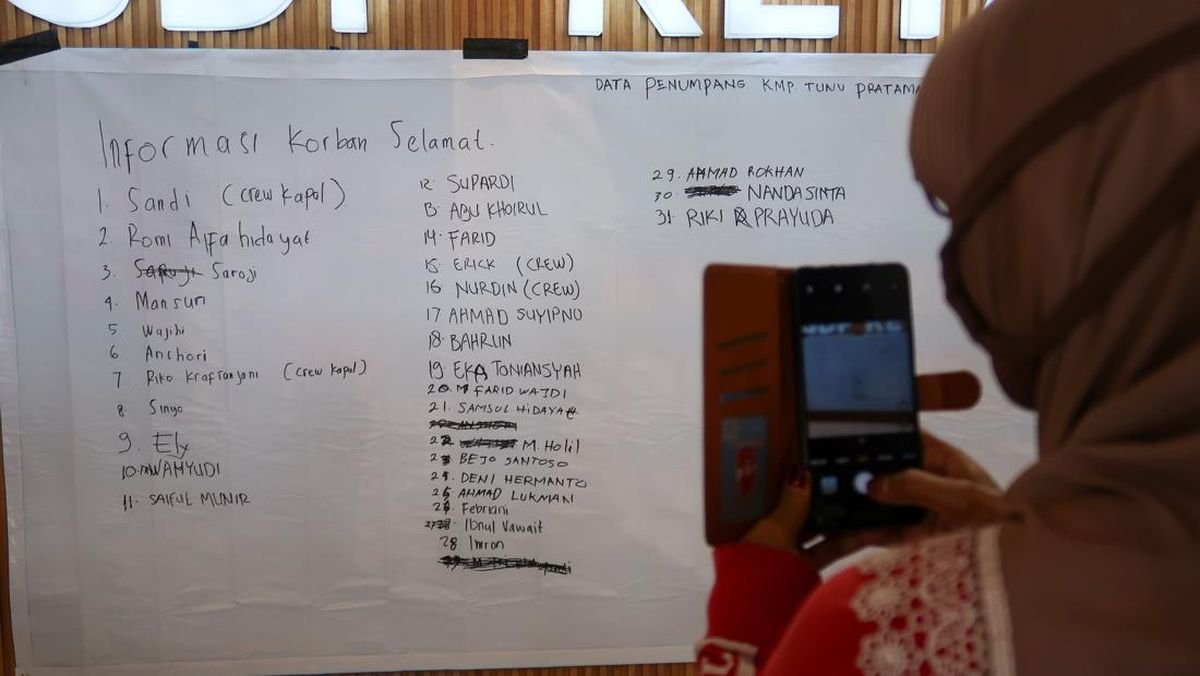 DATA PENUMPANG KMP TUNU PRATAMA
Informasi Korban Selamat.
1. Sandi (crew Kapal)
2. Romi Alfa hidayat
3. Saroji
4. Mansuri
5 Wajihi
6 Anshori
7 Riko Krafsanjani (crew Kapal)
8 Singo
9. Ely
10. WAHYUDI
11. SAIFUL MUNIR
12. SUPARDI
13. ABU KHOIRUL
14. FARID
15. ERICK (CREW)
16 NURDIN (CREW)
17 AHMAD SUYIPNO
18. BAHRUN
19 EKA TONIANSYAH
20. M FARID WAJDI
21. SAMSUL HIDAYAT
22 M. Holil
23 BEJO SANTOSO
24. DENI HERMANTO
25 AHMAD LUKMAN
26 Febriani
27 Ibnul Vawait
28 Imron
29. AHMAD ROKHAN
30. NANDA SINTA
31. RIKI PRAYUDA